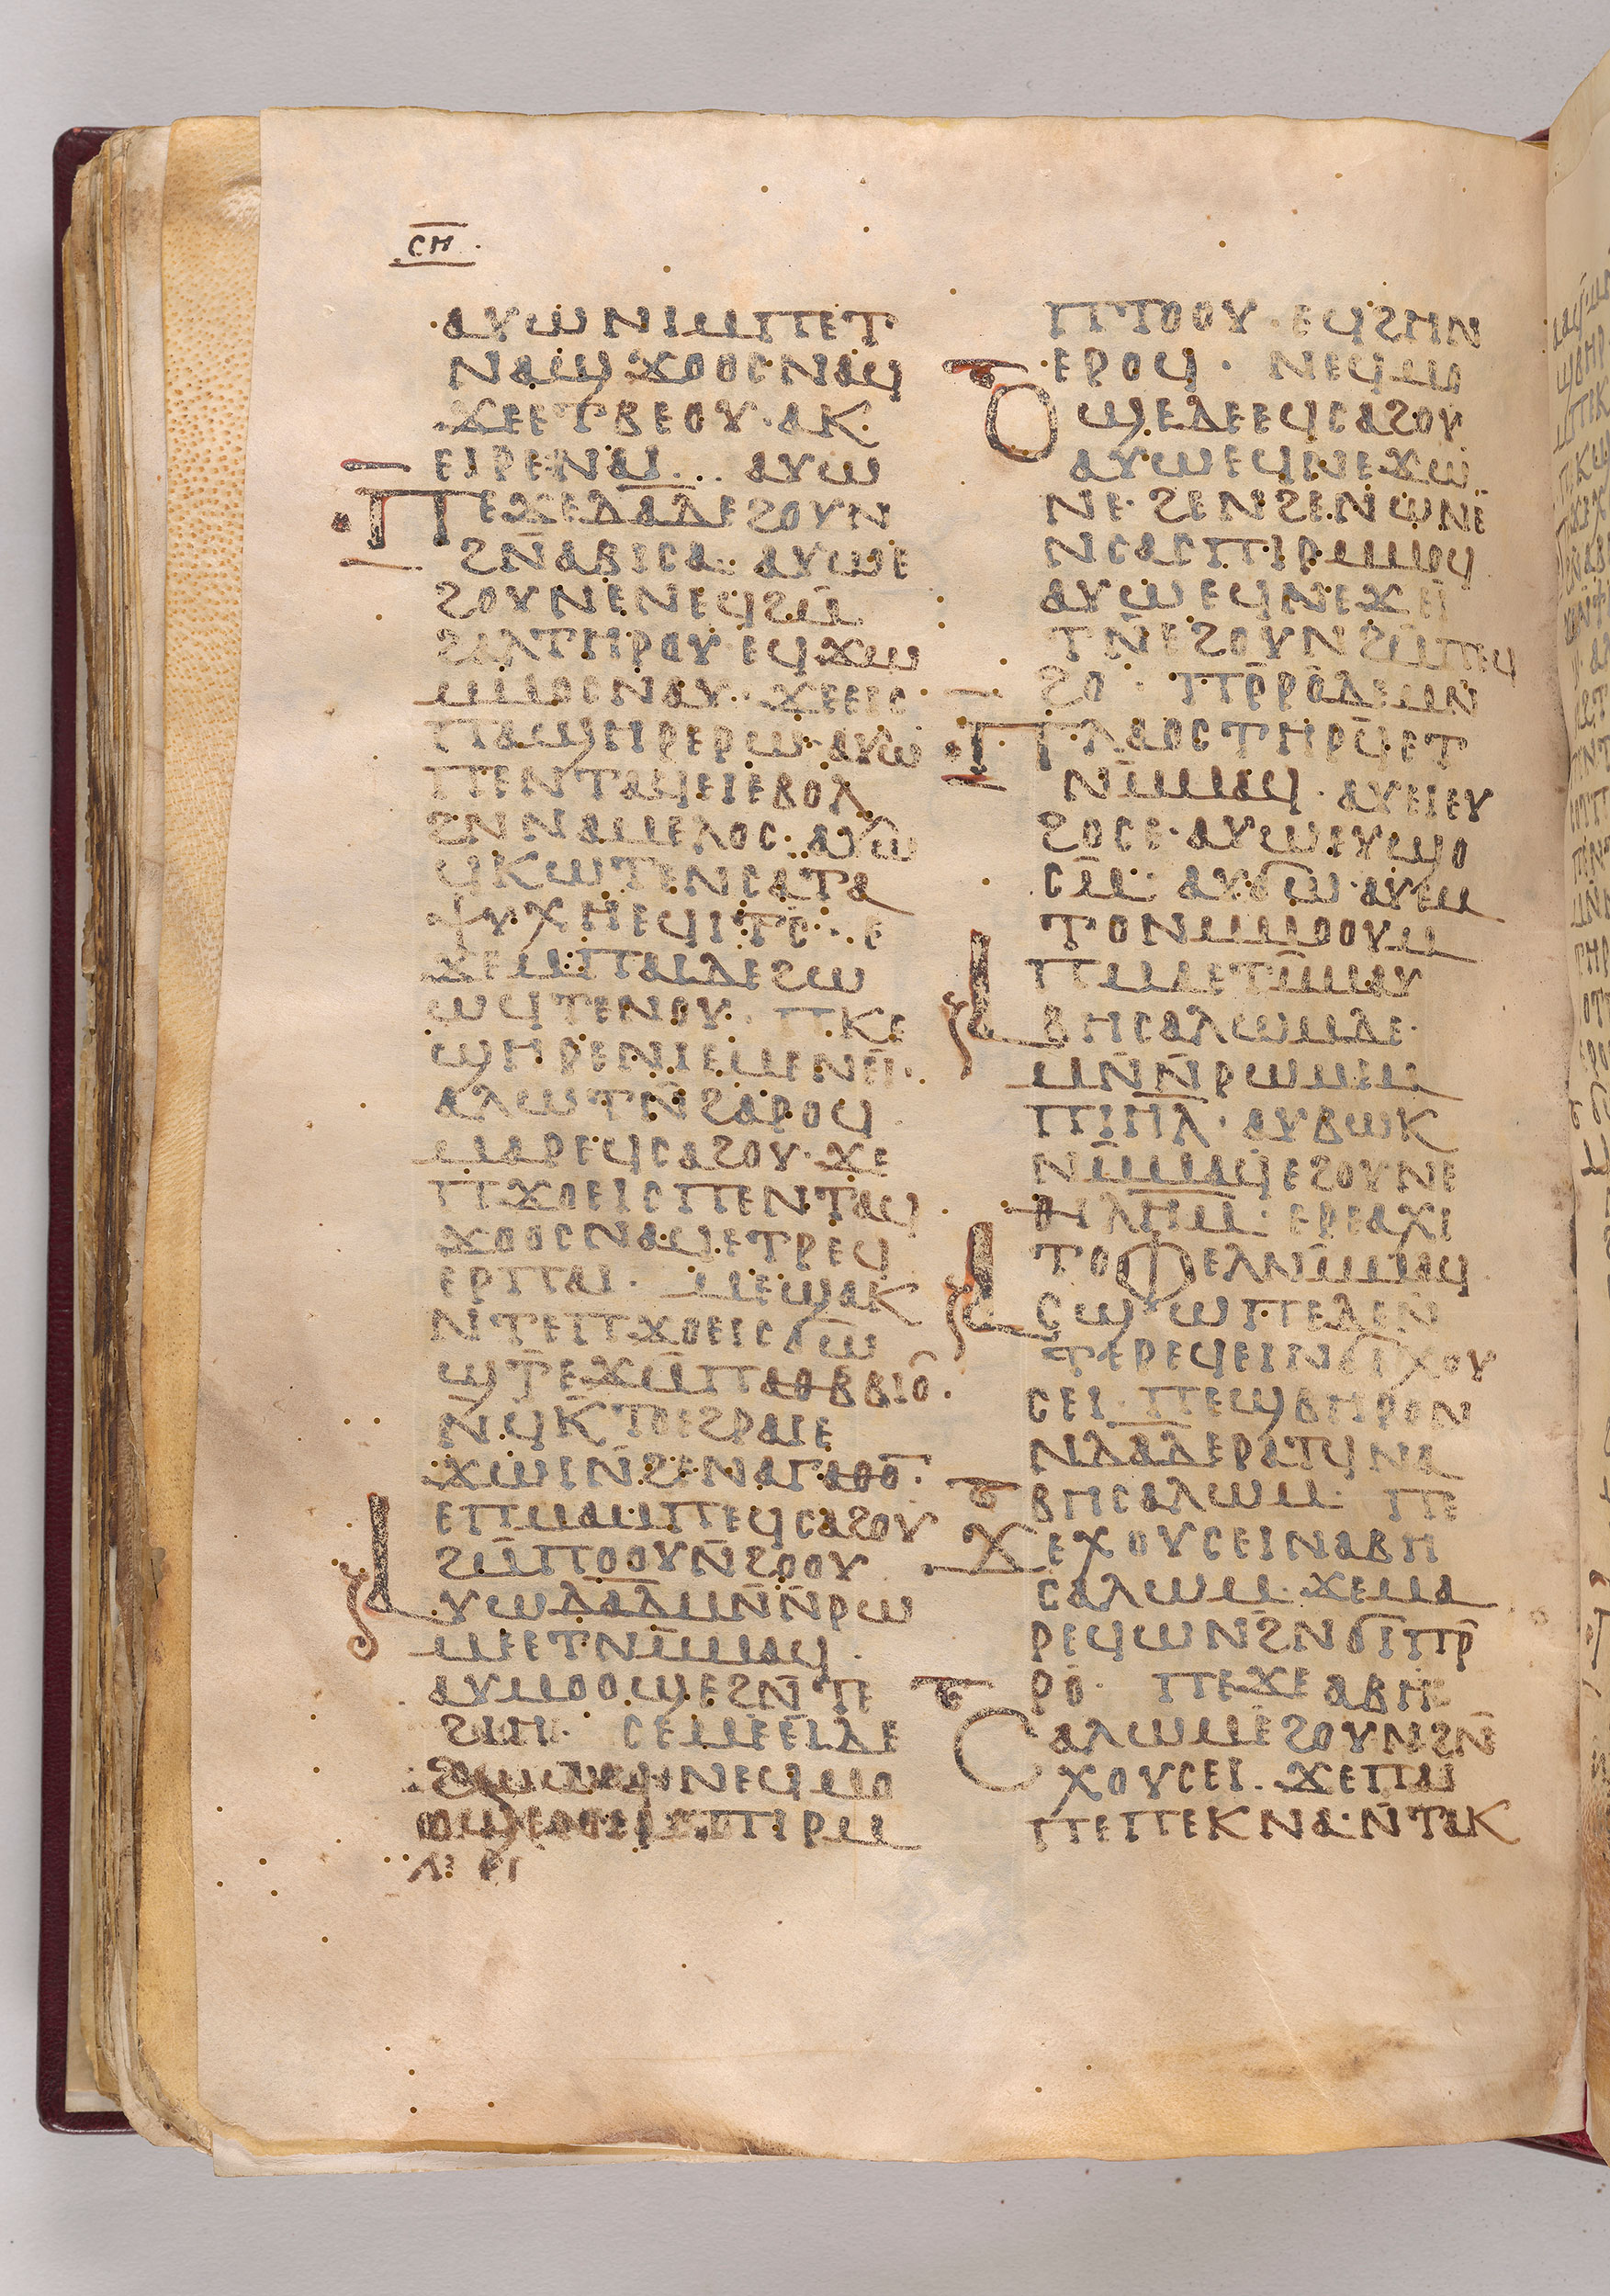 ⲥⲏ
ⲁⲩⲱⲛⲓⲙⲡⲉⲧ
ⲛⲁϣϫⲟⲟⲥ·ⲛⲁϥ
ϫⲉⲉⲧⲃⲉⲟⲩ·ⲁⲕ
ⲉⲓⲣⲉⲛⲁⲓ· ⲁⲩⲱ
ⲡⲉϫⲉⲇⲁ̅ⲇ̅ⲉϩⲟⲩⲛ
ϩⲛ̅ⲁⲃⲓⲥⲁ· ⲁⲩⲱⲉ
ϩⲟⲩⲛⲉⲛⲉϥϩⲙ̅
ϩⲁⲗⲧⲏⲣⲟⲩ·ⲉϥϫⲱ
ⲙⲙⲟⲥⲛⲁⲩ· ϫⲉⲉⲓⲥ
ⲡⲁϣⲏⲣⲉⲣⲱ·ⲁⲩⲱ
ⲡⲉⲛⲧⲁϥⲉⲓⲉⲃⲟⲗ
ϩⲛⲛⲁⲙⲉⲗⲟⲥ·ⲁⲩⲱ
ϥⲕⲱⲧⲉⲛⲥⲁⲧⲁ
ⲯⲩⲭⲏⲉϥⲓⲧⲥ̅· ⲉ
ϫⲉⲙⲡⲁⲓⲇⲉϩⲱ
ⲱϥⲧⲉⲛⲟⲩ· ⲡⲕⲉ
ϣⲏⲣⲉⲛⲓⲉⲙⲉⲛⲉⲓ̅·
ⲁⲗⲱⲧⲛ̅ϩⲁⲣⲟϥ
ⲙⲁⲣⲉϥⲥⲁϩⲟⲩ·ϫⲉ
ⲡϫⲟⲉⲓⲥⲡⲉⲛⲧⲁϥ
ϫⲟⲟⲥⲛⲁϥⲉⲧⲣⲉϥ
ⲉⲣⲡⲁⲓ· ⲙⲉϣⲁⲕ
ⲛⲧⲉⲡϫⲟⲉⲓⲥϭⲱ̅
ϣⲧ̅ⲉϫⲙ̅ⲡⲁⲑⲃⲃⲓⲟ̂·
ⲛ̅ϥⲕ̅ⲧⲟⲉϩⲣⲁⲓⲉ
ϫⲱⲓⲛ̅ϩⲉⲛⲁⲅⲁⲑⲟ̅·
ⲉⲡⲙⲁ·ⲙⲡⲉϥⲥⲁϩⲟⲩ
ϩⲙ̅ⲡⲟⲟⲩⲛ̅ϩⲟⲟⲩ
ⲁⲩⲱⲇⲁ̅ⲇ̅ⲙⲛ̅ⲛ̅ⲣⲱ
ⲙⲉⲉⲧⲛⲙ̅ⲙⲁϥ·
ⲁⲩⲙⲟⲟϣⲉϩⲛ̅ⲧⲉ
ϩⲓⲏ· ⲥⲉⲙⲉⲉⲓ̅ⲇⲉ
ⲛⲉϥⲙⲟ
ⲡⲧⲟⲟⲩ·ⲉϥϩⲏⲛ
ⲉⲣⲟϥ· ⲛⲉϥⲙⲟ
ⲟϣⲉⲇⲉⲉϥⲥⲁϩⲟⲩ
ⲁⲩⲱⲉϥⲛⲉϫⲱ̅
ⲛⲉ·ϩⲉⲛϩⲉⲛⲱⲛⲉ
ⲛⲥⲁⲥⲡⲓⲣⲙⲙⲟϥ
ⲁⲩⲱⲉϥⲛⲉϫⲉⲓ̅
ⲧⲛ̅ⲉϩⲟⲩⲛϩⲙ̅ⲡⲉϥ
ϩⲟ· ⲡⲣ̅ⲣⲟ̅ⲇⲉⲙⲛ
ⲡⲗⲁⲟⲥⲧⲏⲣϥ̅ⲉⲧ
ⲛⲙ̅ⲙⲁϥ·ⲁⲩⲉⲓⲉⲩ
ϩⲟⲥⲉ·ⲁⲩⲱⲉⲩϣⲟ
ⲥⲙ̅·ⲁⲩϭⲱ̅·ⲁⲩⲙ
ⲧⲟⲛⲙⲙⲟⲟⲩⲙ
ⲡⲙⲁⲉⲧⲙ̅ⲙⲁⲩ
ⲁⲃⲏⲥⲁⲗⲱⲙⲇⲉ·
ⲙⲛ̅ⲛ̅ⲣⲱⲙⲉⲙ
ⲡⲓ̅ⲏ̅ⲗ̅·ⲁⲩⲃⲱⲕ
ⲛⲙ̅ⲙⲁϥⲉϩⲟⲩⲛⲉ
ⲑⲓ̅ⲗ̅ⲏ̅ⲙ̅·ⲉⲣⲉⲁⲭⲓ
ⲧⲟⲫⲉⲗⲛⲙ̅ⲙⲁϥ
ⲁⲥϣⲱⲡⲉⲇⲉⲛ̅
ⲧⲉⲣⲉϥⲉⲓⲛϭⲓ̅ⲭⲟⲩ
ⲥⲉⲓ·ⲡⲉϣⲃⲏⲣⲟⲛ
ⲛⲇⲁ̅ⲇ̅ⲉⲣⲁⲧϥⲛⲁ
ⲃⲏⲥⲁⲗⲱⲙ· ⲡⲉ
ϫⲉⲭⲟⲩⲥⲉⲓⲛⲁⲃⲏ
ⲥⲁⲗⲱⲙ·ϫⲉⲙⲁ
ⲣⲉϥⲱⲛϩⲛϭⲓ̅ⲡⲣ̅
ⲣⲟ· ⲡⲉϫⲉⲁⲃⲏ
ⲥⲁⲗⲱⲙⲉϩⲟⲩⲛϩⲛ̅
ⲭⲟⲩⲥⲉⲓ·ϫⲉⲡⲁⲓ
ⲡⲉⲡⲉⲕⲛⲁ·ⲛ̅ⲧⲁⲕ